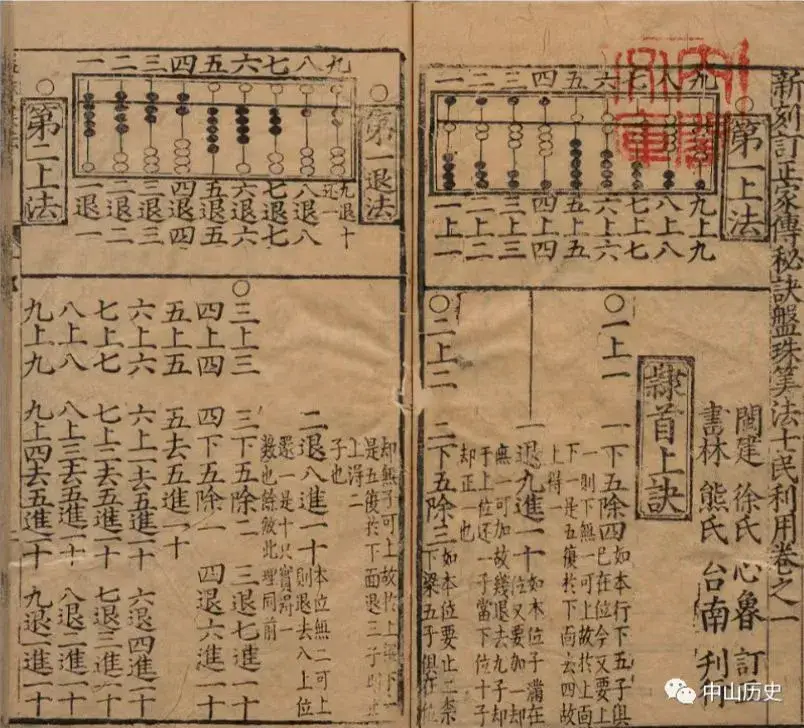 新刻訂正家傳秘訣盤珠筭法士民利用卷之一
閩建 徐氏 心魯 訂
書林 熊氏 台南 刊行
○第一上法
一二三四五六七八九
一上一
二上二
三上三
四上四
五上五
六上六
七上七
八上八
九上九
隸首上訣
○一上一 一下五除四
如本行下五子與
已在位今又要上
一則下無一可上故於上面
下一是五復於下面去四故
上得一
一退九進一十
如本位子滿在
位又要加一却
無一可加故幾退去九子却
于上位还一子當下位十子
却正一也
○二上二 二下五除三
如本位要止二柰
下梁五子俱在位
○第一退法
一二三四五六七八九
一退一
二退二
三退三
四退四
五退五
六退六
七退七
八退八
九退十
还一
○第二上法
却無子可上故於上梁下一
是五復於下面退三子則
上得二
子也
二退八進一十
本位無二可上
則退去八上位
還一是十只實得一
數也餘倣此理同前
○三上三 三下五除二 三退七進一十
四上四 四下五除一 四退六進一十
五上五 五去五進一十
六上六 六上一去五進一十 六退四進一十
七上七 七上二去五進一十 七退三進一十
八上八 八上三去五進一十 八退二進一十
九上九 九上四去五進一十 九退一進一十
中山历史